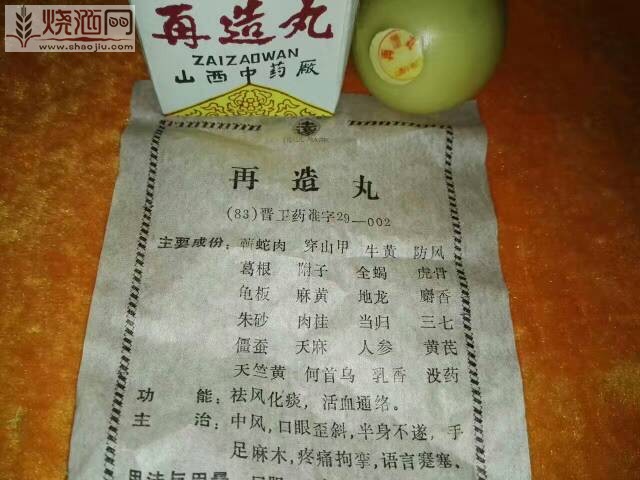 烧酒网
www.shaojiu.com
再造丸
ZAIZAOWAN
山西中药厰
再造丸
再造丸
(83)晋卫药准字29—002
主要成份：蕲蛇肉 穿山甲 牛黄 防风
葛根 附子 全蝎 虎骨
龟板 麻黄 地龙 麝香
朱砂 肉桂 当归 三七
僵蚕 天麻 人参 黄芪
天竺黄 何首乌 乳香 没药
功能：祛风化痰，活血通络。
主治：中风，口眼歪斜，半身不遂，手
足麻木，疼痛拘挛，语言蹇塞、
用法与用量